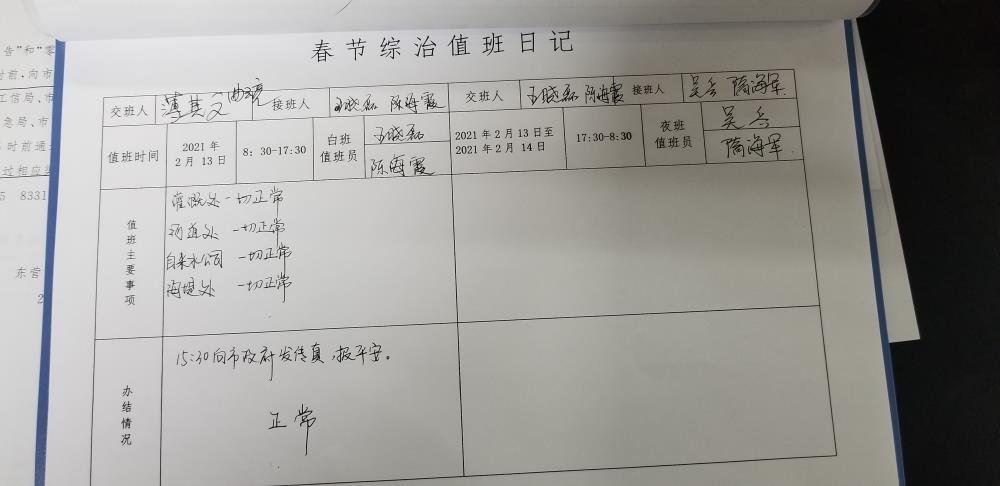 告"和"零
时前,向市
工信局、市
急局、市
时前通
过相应
5 8331
东营
2
春节综治值班日记
交班人 薄其文 曲亮 接班人 王晓磊 陈海霞 交班人 王晓磊 陈海霞 接班人 吴兵 隋海军
值班时间 2021年2月13日 8:30-17:30 白班值班员 王晓磊 陈海霞 2021年2月13日至2021年2月14日 17:30-8:30 夜班值班员 吴兵 隋海军
值班主要事项
灌溉处 一切正常
河道处 一切正常
自来水公司 一切正常
海堤处 一切正常
办结情况
15:30向市政府发传真,报平安。
正常